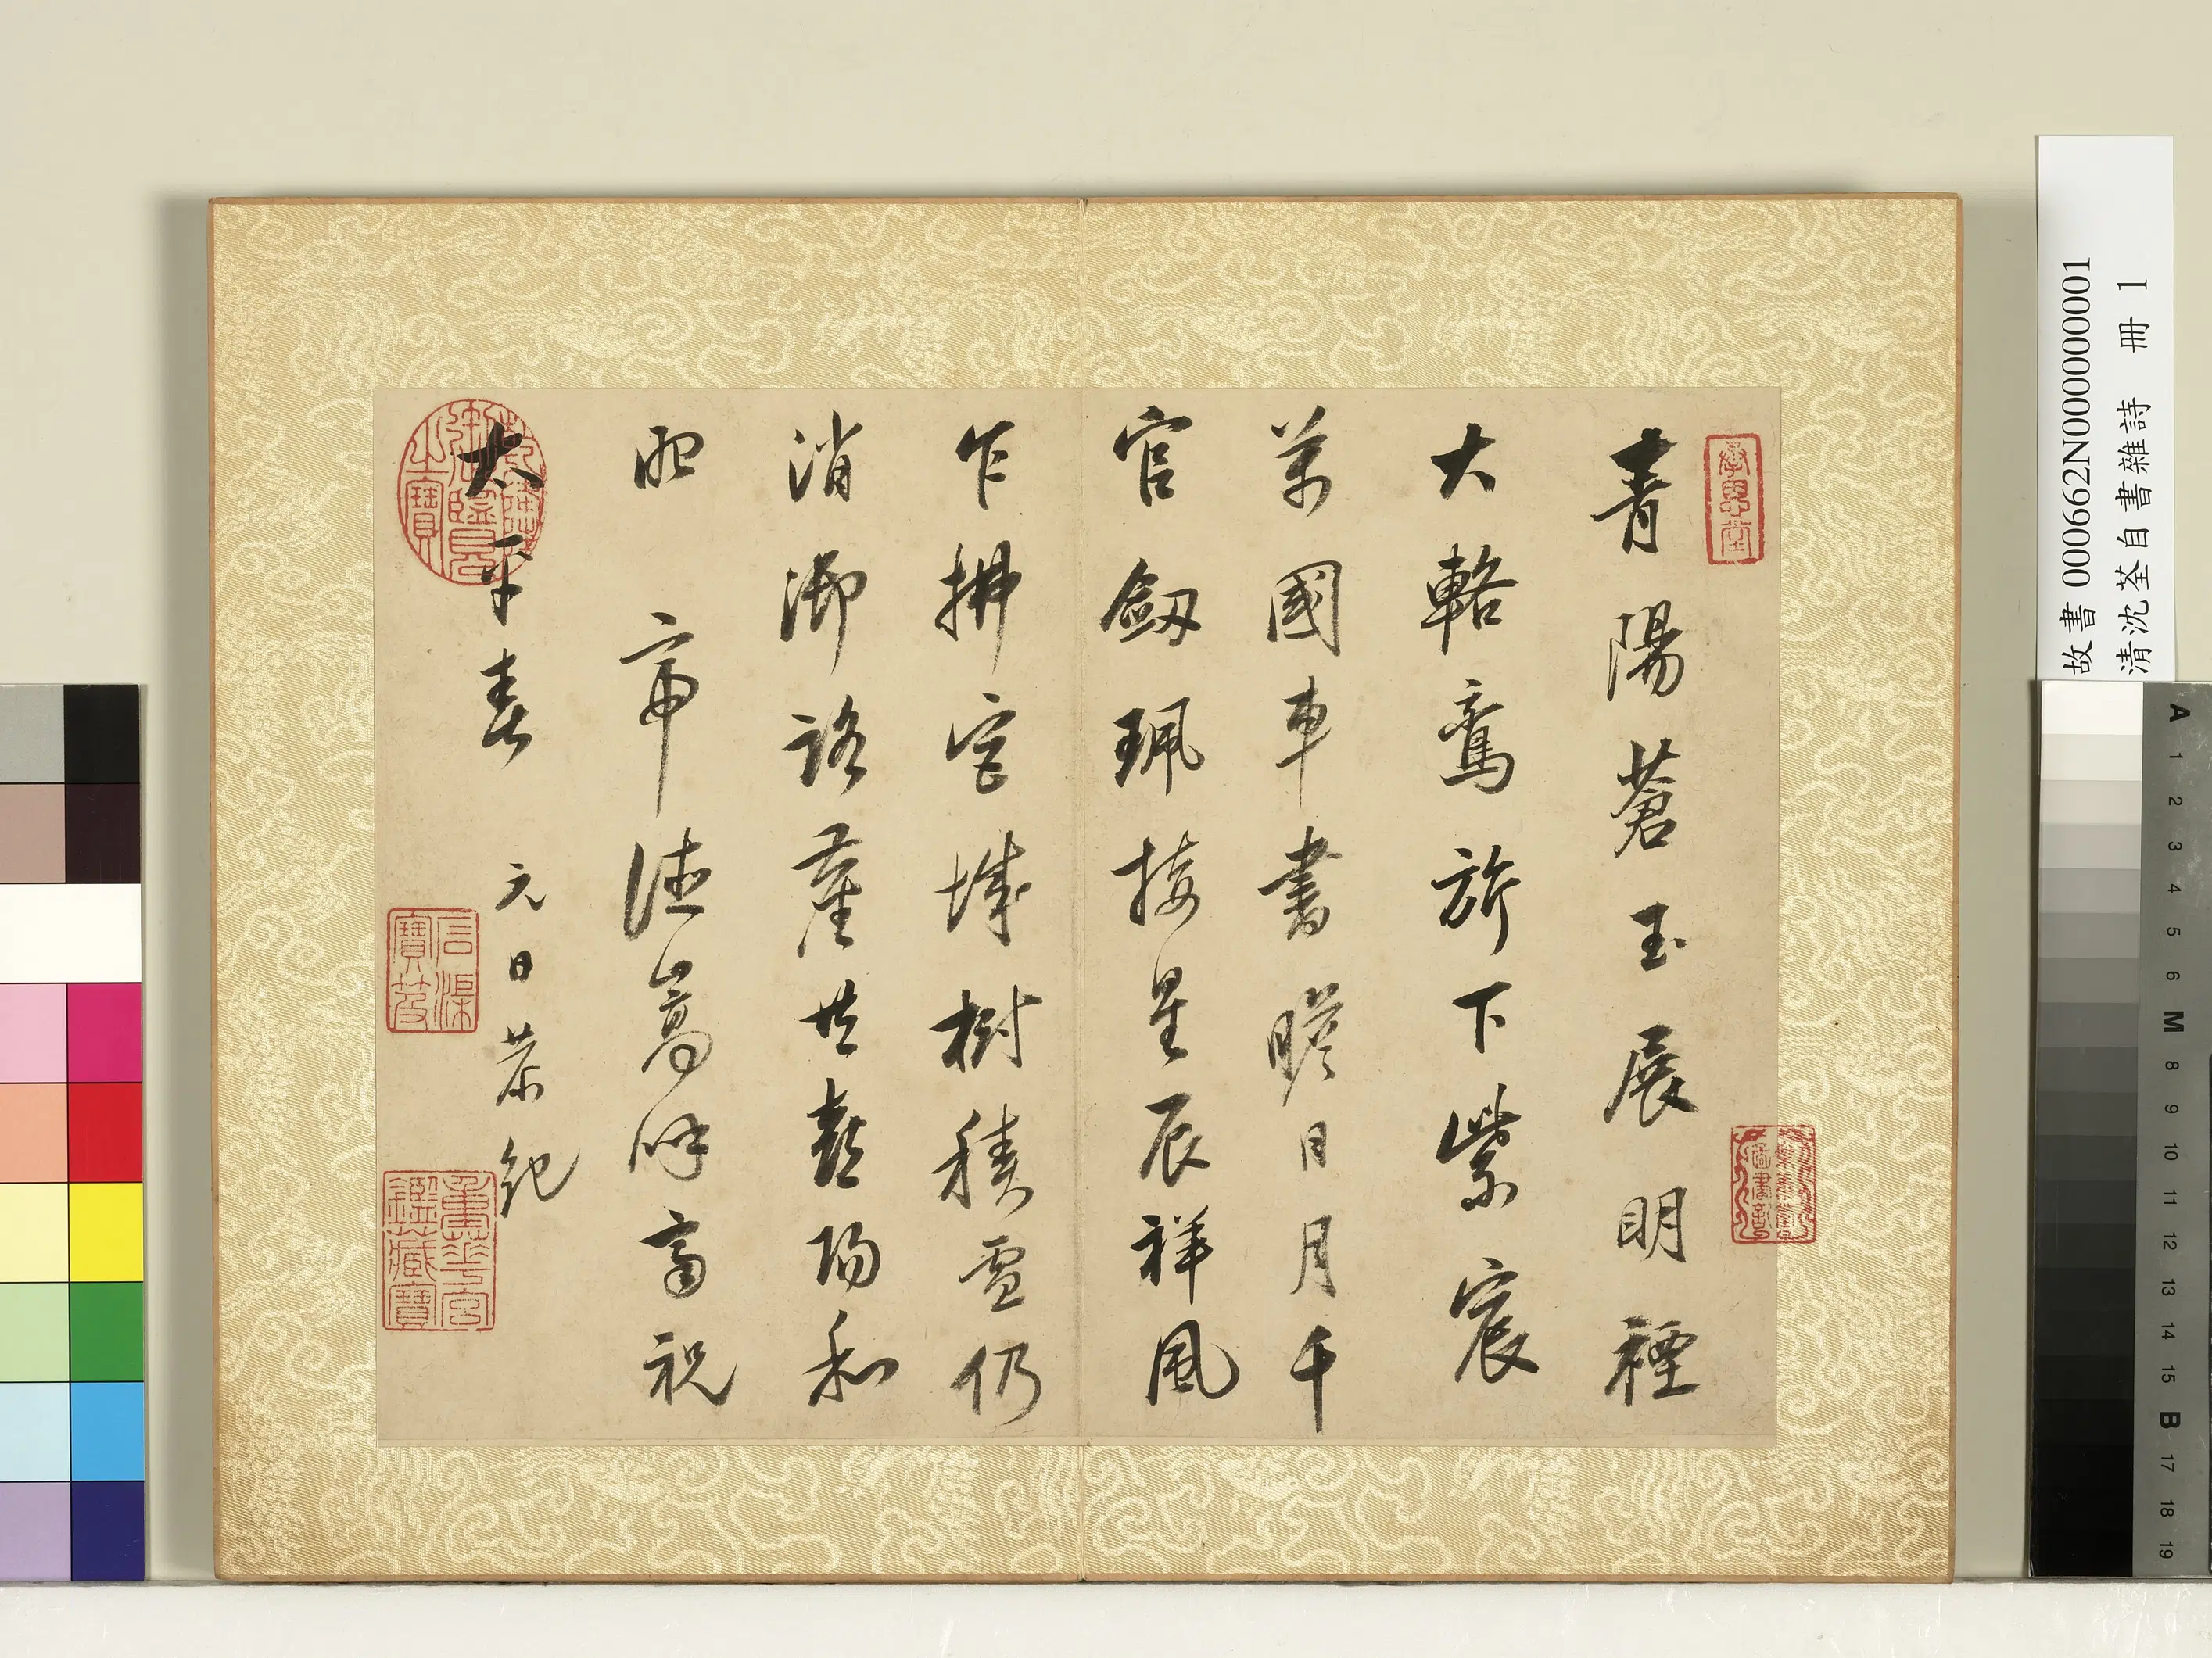 青陽蒼玉展明禋
大輅鸞旂下紫宸
萬國車書瞻日月千
官劔珮接星辰祥風
乍拂宮城樹積雪仍
消御路塵共喜陽和
配帝德嵩呼齊祝
太平春 元日恭紀
樂善堂圖書記
石渠寶笈
重華宮鑑藏寶
故書 000662N000000001
清沈荃自書雜詩 冊 1
A 1 2 3 4 5 6 M 8 9 10 11 12 13 14 15 B 17 18 19